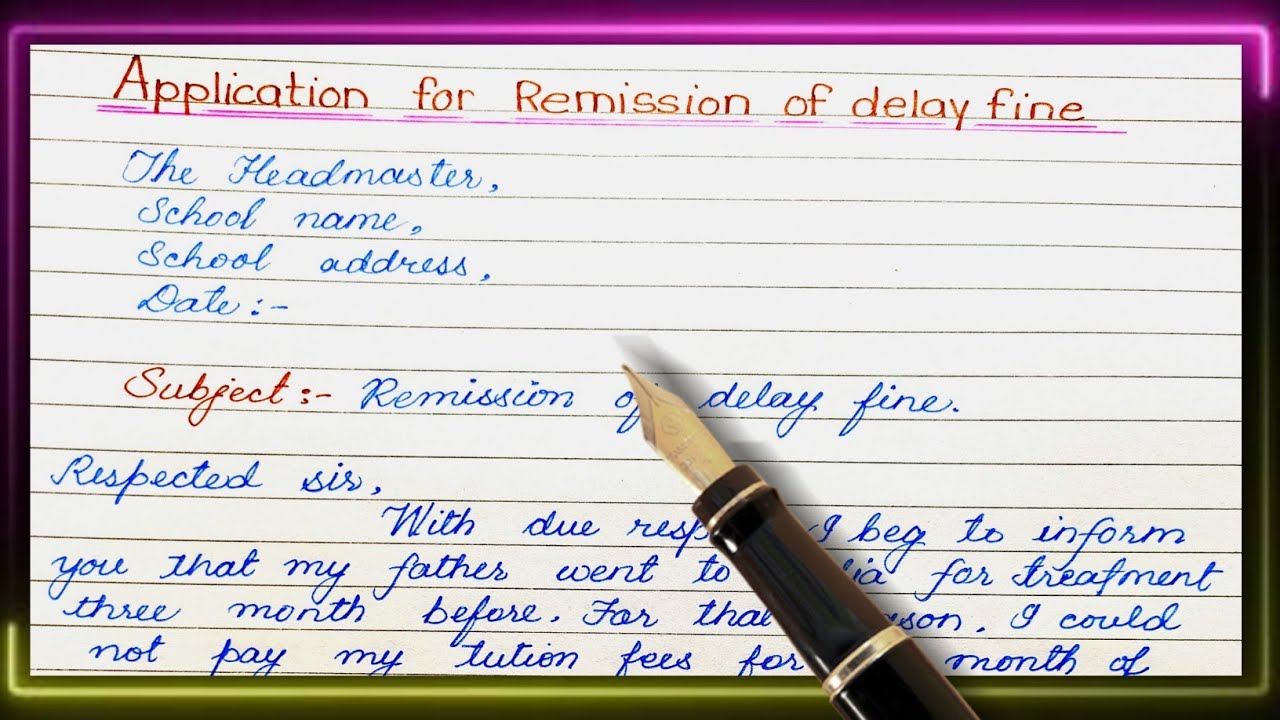 Application for Remission of delay fine
The Headmaster,
School name,
School address,
Date:-
Subject:- Remission of delay fine.
Respected sir,
With due resp I beg to inform
you that my father went to dia for treatment
three month before. For that ason, I could
not pay my tution fees for month of